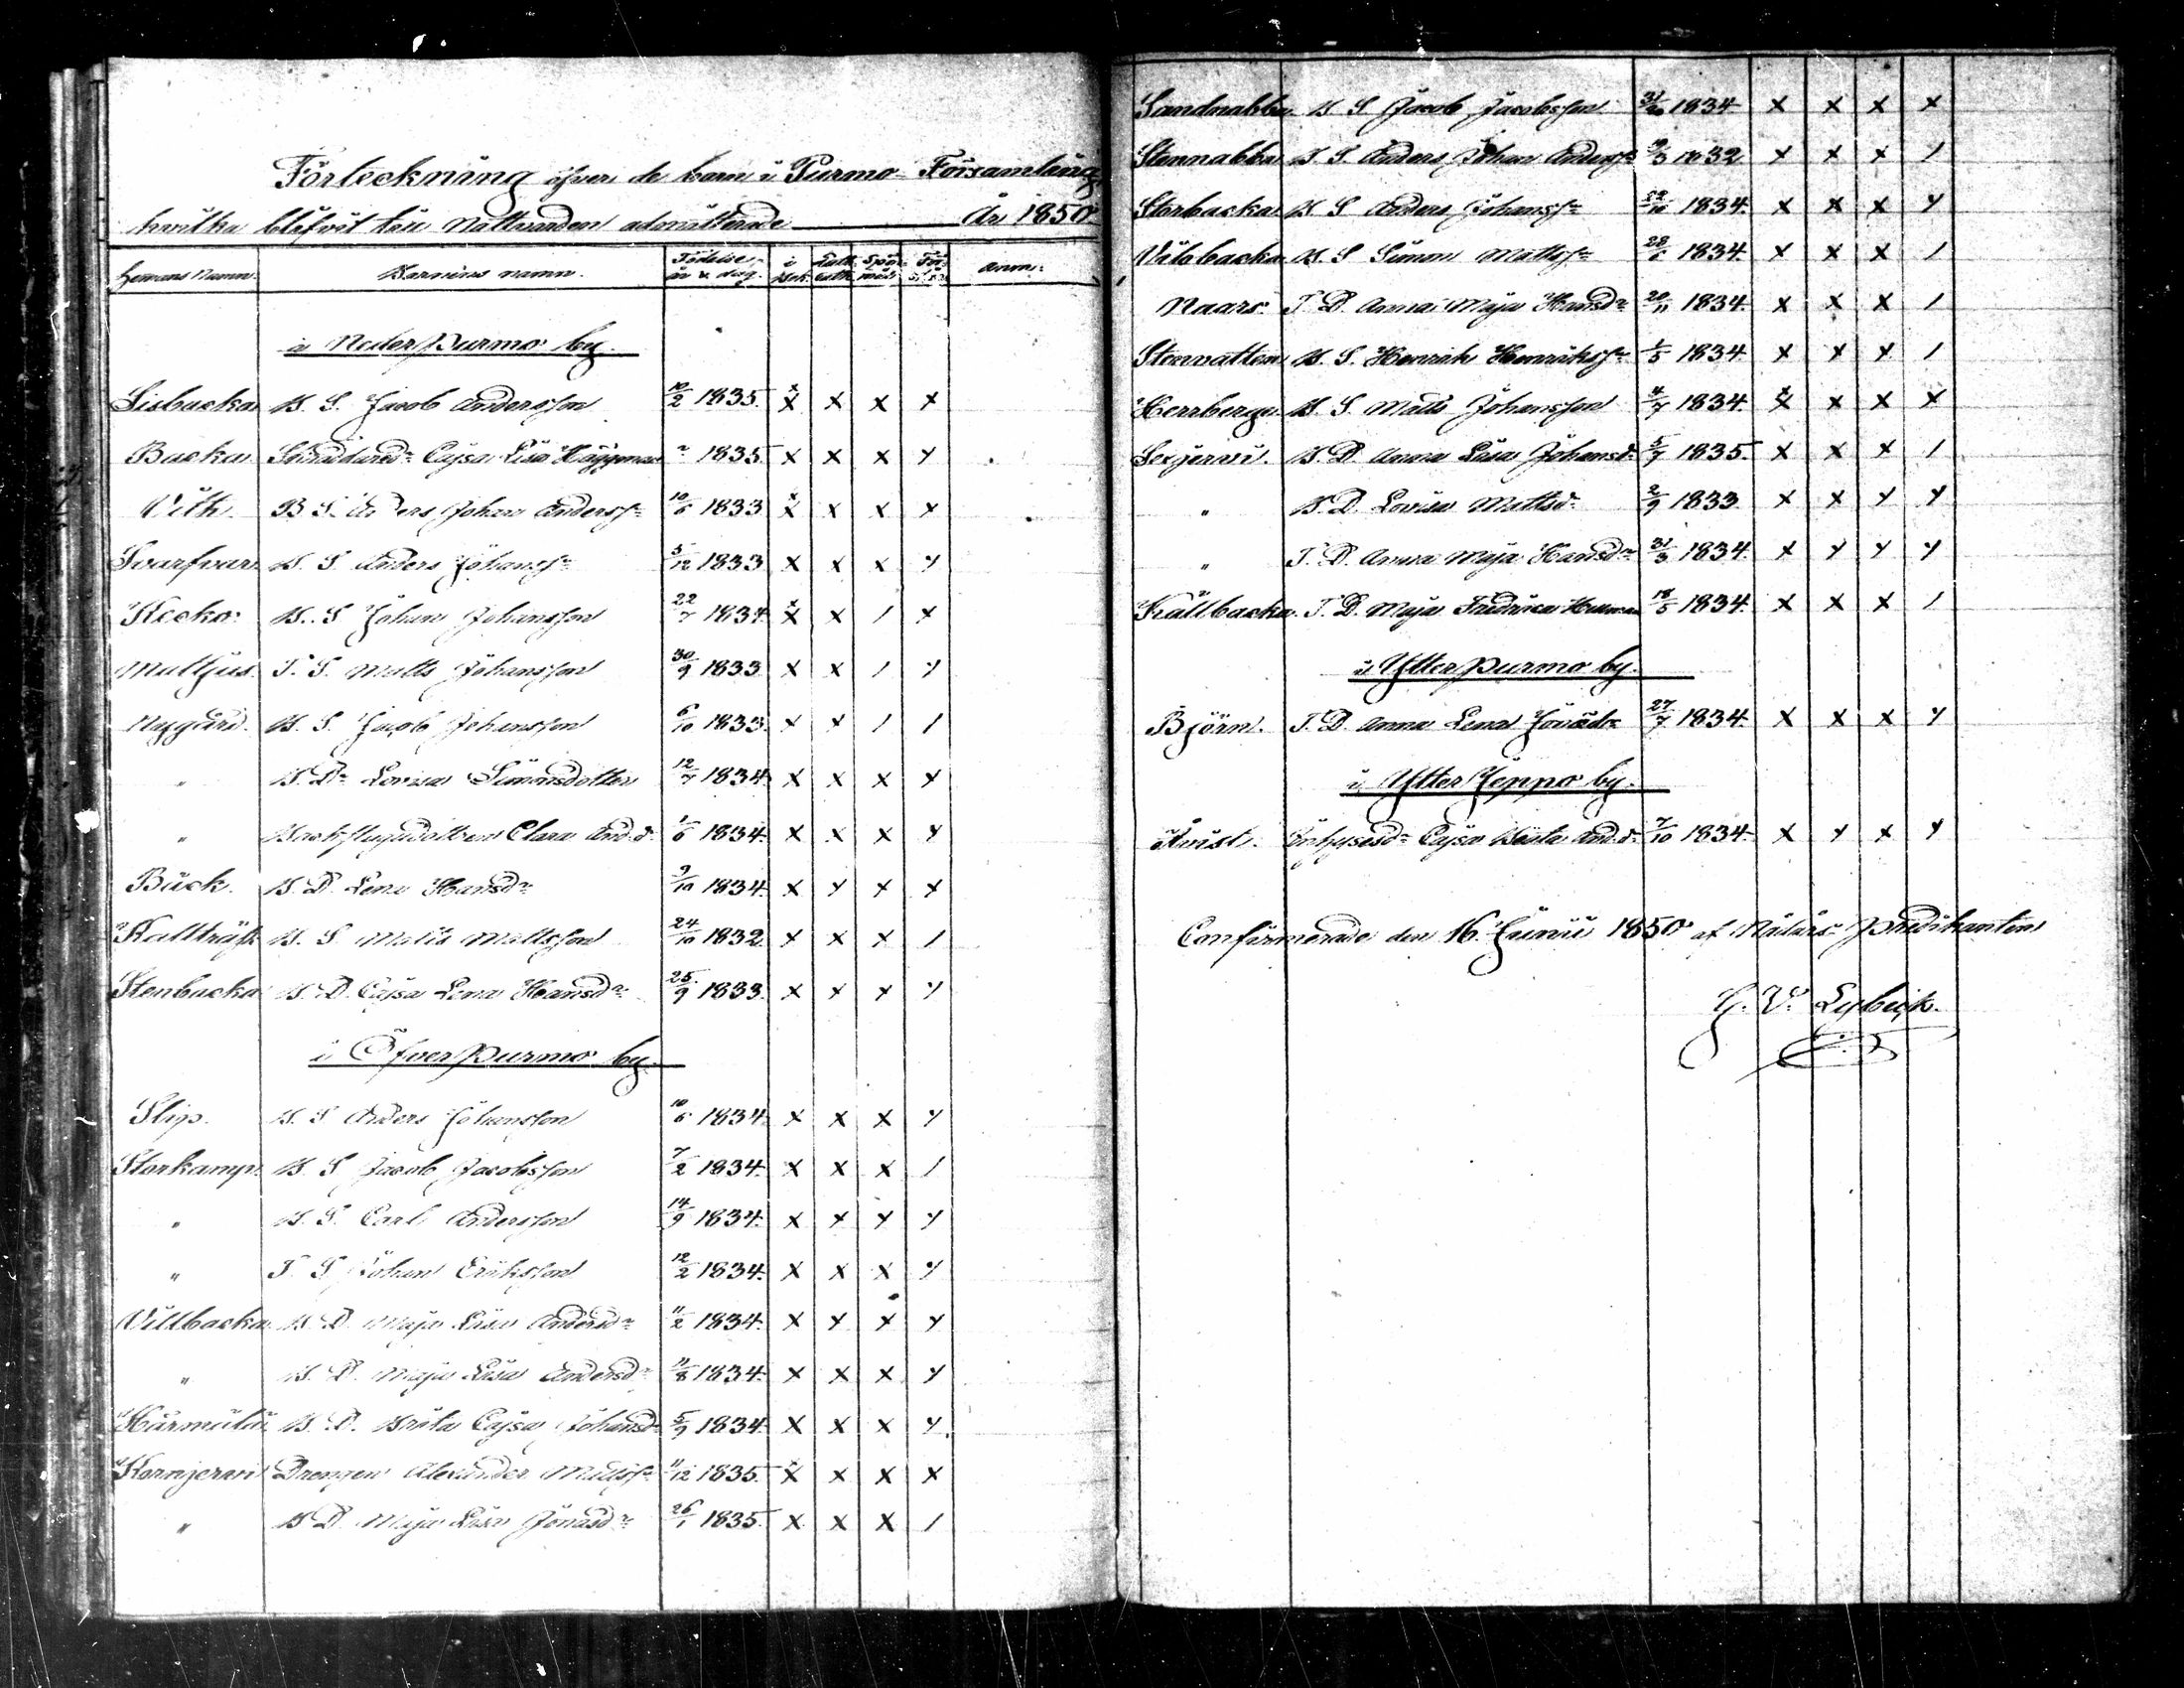 Förteckning öfver de barn i Purmo Församling,
hvilka blifvit till Nattvarden admitterade År 1850.
Hemans Namn. Barnens namn. Födelse år & dag. i Bok. Luth. cath. Spörsmål. Förstånd. Anm:
i NederPurmo by.
Lisbacka B. S. Jacob Andersson 10/2 1835. x x x x
Backa Skräddared:r Cajsa Lisa Häggman " 1835. x x x x
Vith. B. S. Anders Johan Anderss:n 10/6 1833 x x x x
Svarfvar. B. S. Anders Johanss:n 5/12 1833 x x x x
Kecko. B. S. Johan Johansson 22/7 1834. x x / x
Mattjus. T. S. Matts Johansson 30/9 1833 x x / x
Nygård. B. S. Jacob Johansson 6/10 1833. x x / /
" B. D:r Lovisa Simonsdotter 12/7 1834. x x x x
" Clara And.d:r 1/6 1834. x x x x
Bäck. B. D. Lena Hansd:r 9/10 1834. x x x x
Kallträsk B. S. Matts Mattsson 24/10 1832 x x x /
Stenbacka B. D. Cajsa Lena Hansd:r 25/9 1833. x x x x
i ÖfverPurmo by.
Slip. B. S. Anders Johansson 10/6 1834. x x x x
Storkamp. B. S. Jacob Jacobsson 7/2 1834. x x x /
" B. S. Carl Andersson 14/9 1834. x x x x
" T. S. Johan Eriksson 12/2 1834. x x x x
Villbacka B. D. Maja Lisa Andersd:r 11/2 1834. x x x x
" B. D. Maja Lisa Andersd:r 11/8 1834. x x x x
Härmälä B. D. Brita Cajsa Johansd:r 5/9 1834. x x x x
Kornjervi Drengen Alexander Matts:n 11/12 1835. x x x x
" B. D. Maja Lisa Jonasd:r 26/1 1835. x x x /
Sandnabba B. S. Jacob Jacobsson 1834 x x x x
Stennabba B. S. Anders Johan Anders:n 1832 x x x /
Storbacka B. S. Anders Johanss:n 22/10 1834. x x x x
Vilobacka B. S. Simon Mattss:n 1834. x x x /
Naars. T. D. Anna Maja Hansd:r 20/11 1834. x x x /
Stenvatten B. S. Henrik Henrikss:n 1/5 1834. x x x /
Herrberga. B. S. Matts Johansson 4/7 1834. x x x x
Sexjervi. B. D. Anna Lisa Johansd: 5/7 1835. x x x /
" B. D. Lovisa Mattsd:r 2/9 1833. x x x x
" T. D. Anna Maja Hansd:r 31/3 1834. x x x x
Källbacka. T. D. Maja Fredrica 18/5 1834. x x x /
i YtterPurmo by.
Björn. T. D. Anna Lena Jonasd:r 27/7 1834. x x x x
i YtterJeppo by.
Inhysesd:r Cajsa Brita And.d:r 7/10 1834. x x x x
Confirmerade den 16 Junii 1850 af Militär-Predikanten
G. V. Lybeck.